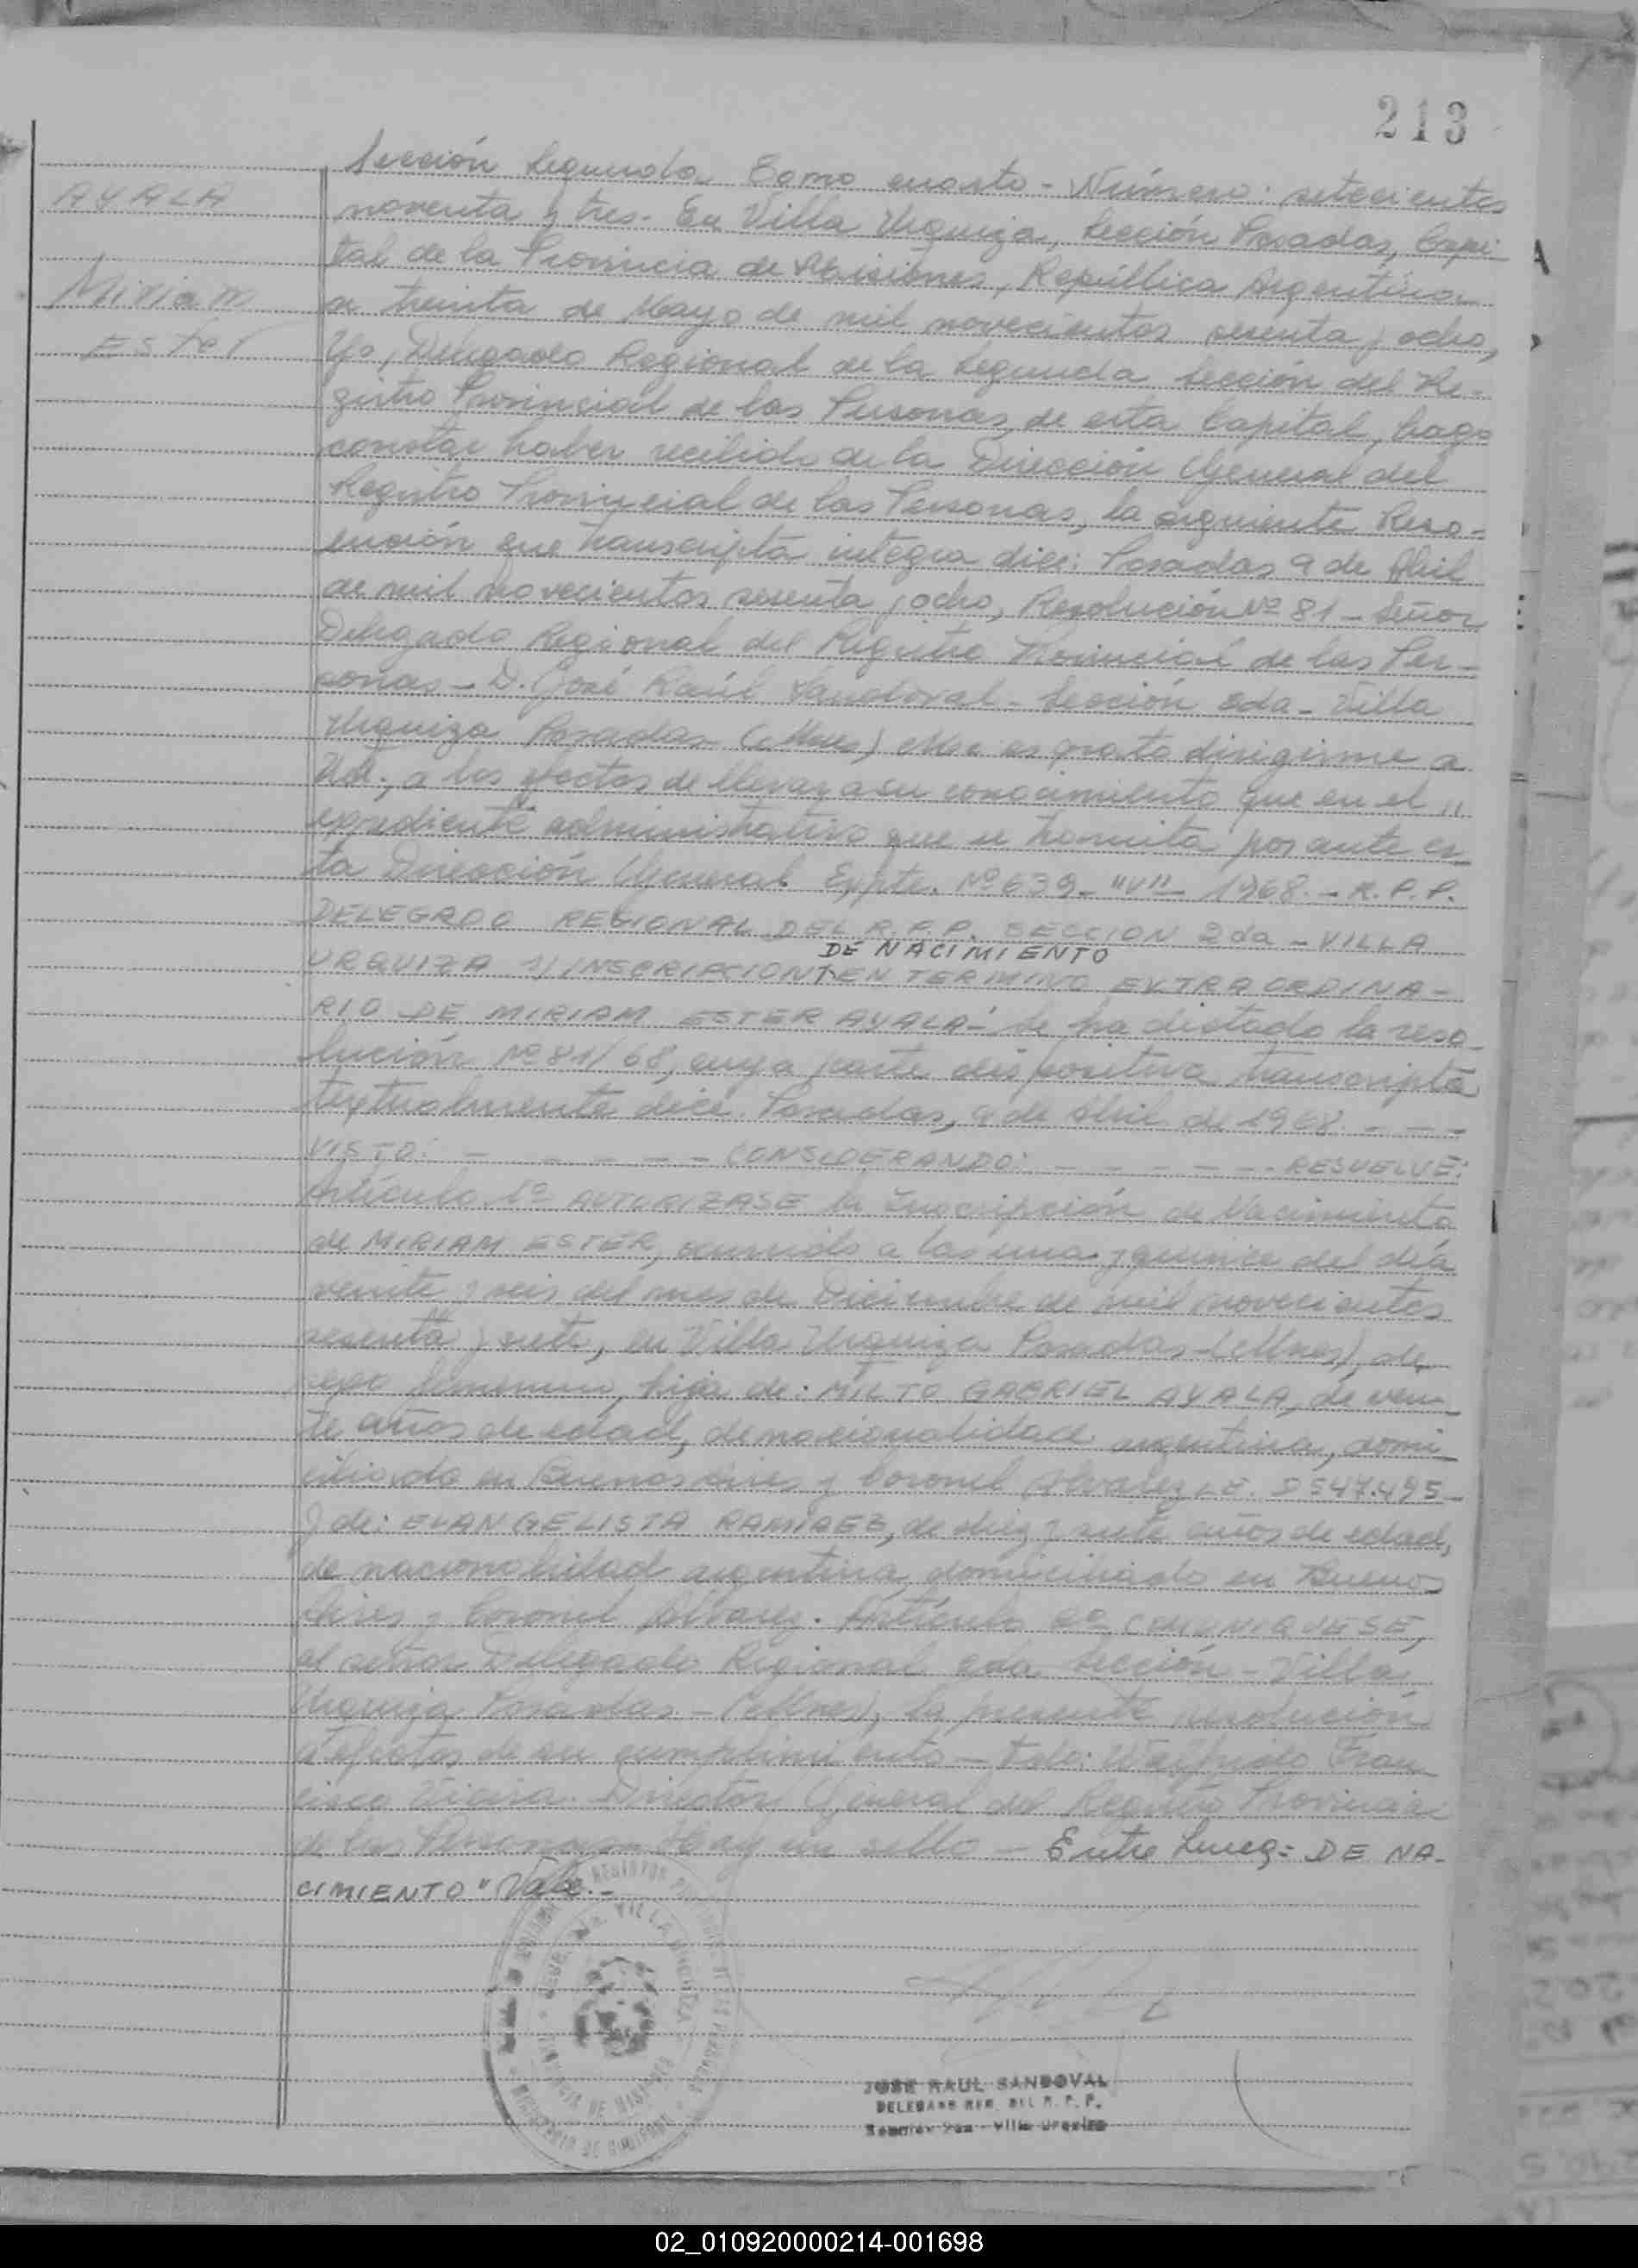 213
AYALA
Miriam
Ester
Sección Segunda Tomo cuarto - Número: setecientos
noventa y tres. En Villa Urquiza, Sección Posadas, Capi-
tal de la Provincia de Misiones, República Argentina
a treinta de Mayo de mil novecientos sesenta y ocho,
Yo, Delegado Regional de la Segunda Sección del Re-
gistro Provincial de las Personas, de esta Capital, hago
constar haber recibido de la Dirección General del
Registro Provincial de las Personas, la siguiente Reso-
lución que transcripta integra dice: Posadas 9 de Abril
de mil novecientos sesenta y ocho, Resolución Nº 81 - Señor
Delegado Regional del Registro Provincial de las Per-
sonas - D. José Raúl Sandoval - Sección 2da - Villa
Urquiza Posadas (Mnes) Me es grato dirigirme a
Ud., a los efectos de llevar a su conocimiento que en el
expediente administrativo que se tramita por ante es-
ta Dirección General Expte. Nº 639 - "V" - 1968. - R.P.P.
DELEGADO REGIONAL DEL R.P.P. SECCION 2da - VILLA
DE NACIMIENTO
URQUIZA S/ INSCRIPCION EN TERMINO EXTRAORDINA-
RIO DE MIRIAM ESTER AYALA - Se ha dictado la reso-
lución Nº 81/68, cuya parte dispositiva transcripta
textualmente dice. Posadas, 9 de Abril de 1968. - - -
VISTO: - - - - - - CONSIDERANDO: - - - - - - RESUELVE:
Artículo 1º AUTORIZASE la Inscripción de Nacimiento
de MIRIAM ESTER, ocurrido a las una y quince del día
veinte y seis del mes de Diciembre de mil novecientos
sesenta y siete, en Villa Urquiza Posadas - (Mnes), de
sexo femenino, hija de: MILTO GABRIEL AYALA, de vein-
te años de edad, de nacionalidad argentina, domi-
ciliado en Buenos Aires y Coronel Alvarez L.E. 547.495 -
y de: EVANGELISTA RAMIREZ, de diez y siete años de edad,
de nacionalidad argentina, domiciliado en Buenos
Aires y Coronel Alvarez. Artículo 2º COMUNIQUESE,
al señor Delegado Regional 2da Sección - Villa
Urquiza Posadas. - (Mnes), la presente resolución
a efectos de su cumplimiento - Fdo: Fran-
cisco Vieira. Director General del Registro Provincial
de las Personas. Hay un sello - Entre Lineas: DE NA-
CIMIENTO" Vale. -
VILLA URQUIZA
PROVINCIA DE MISIONES
MINISTERIO DE GOBIERNO
JOSE RAUL SANDOVAL
DELEGADO REG. DEL R.P.P.
Sección 2da - Villa Urquiza
02_010920000214-001698